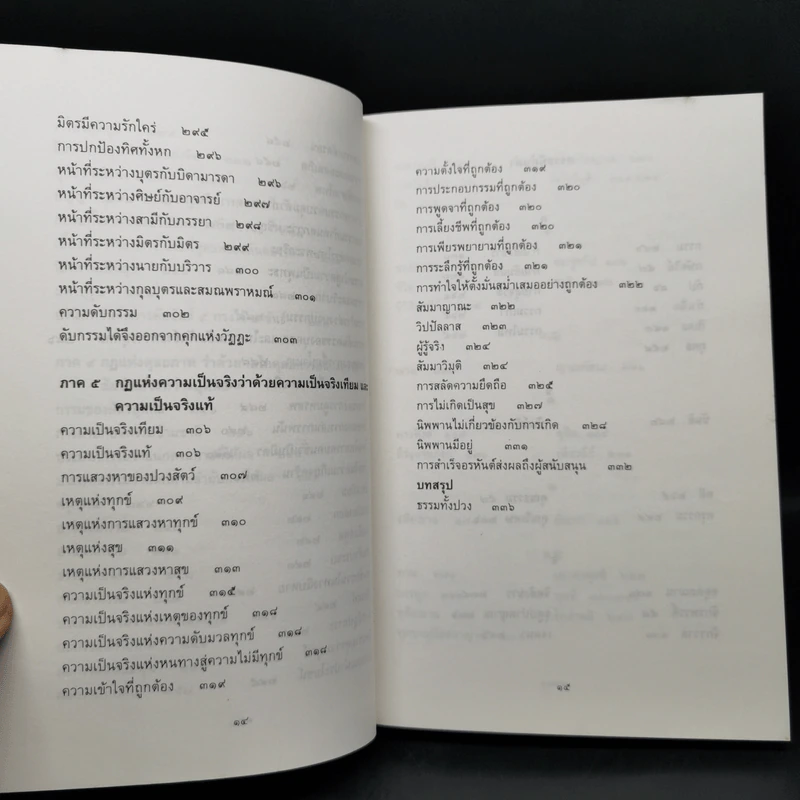 มิตรมีความรักใคร่ ๒๙๕
การปกป้องทิศทั้งหก ๒๙๖
หน้าที่ระหว่างบุตรกับบิดามารดา ๒๙๖
หน้าที่ระหว่างศิษย์กับอาจารย์ ๒๙๗
หน้าที่ระหว่างสามีกับภรรยา ๒๙๘
หน้าที่ระหว่างมิตรกับมิตร ๒๙๙
หน้าที่ระหว่างนายกับบริวาร ๓๐๐
หน้าที่ระหว่างกุลบุตรและสมณพราหมณ์ ๓๐๑
ความดับกรรม ๓๐๒
ดับกรรมได้จึงออกจากคุกแห่งวัฏฏะ ๓๐๓
ภาค ๕ กฏแห่งความเป็นจริงว่าด้วยความเป็นจริงเทียม และ
ความเป็นจริงแท้
ความเป็นจริงเทียม ๓๐๖
ความเป็นจริงแท้ ๓๐๖
การแสวงหาของปวงสัตว์ ๓๐๗
เหตุแห่งทุกข์ ๓๐๙
เหตุแห่งการแสวงหาทุกข์ ๓๑๐
เหตุแห่งสุข ๓๑๑
เหตุแห่งการแสวงหาสุข ๓๑๓
ความเป็นจริงแห่งทุกข์ ๓๑๕
ความเป็นจริงแห่งเหตุของทุกข์ ๓๑๘
ความเป็นจริงแห่งความดับมวลทุกข์ ๓๑๘
ความเป็นจริงแห่งหนทางสู่ความไม่มีทุกข์ ๓๑๘
ความเข้าใจที่ถูกต้อง ๓๑๙
๑๔
ความตั้งใจที่ถูกต้อง ๓๑๙
การประกอบกรรมที่ถูกต้อง ๓๒๐
การพูดจาที่ถูกต้อง ๓๒๐
การเลี้ยงชีพที่ถูกต้อง ๓๒๐
การเพียรพยายามที่ถูกต้อง ๓๒๑
การระลึกรู้ที่ถูกต้อง ๓๒๑
การทำใจให้ตั้งมั่นสม่ำเสมออย่างถูกต้อง ๓๒๒
สัมมาญาณะ ๓๒๒
วิปปัลลาส ๓๒๓
ผู้รู้จริง ๓๒๔
สัมมาวิมุติ ๓๒๔
การสลัดความยึดถือ ๓๒๕
การไม่เกิดเป็นสุข ๓๒๗
นิพพานไม่เกี่ยวข้องกับการเกิด ๓๒๘
นิพพานมีอยู่ ๓๓๑
การสำเร็จอรหันต์ส่งผลถึงผู้สนับสนุน ๓๓๒
บทสรุป
ธรรมทั้งปวง ๓๓๖
๑๕